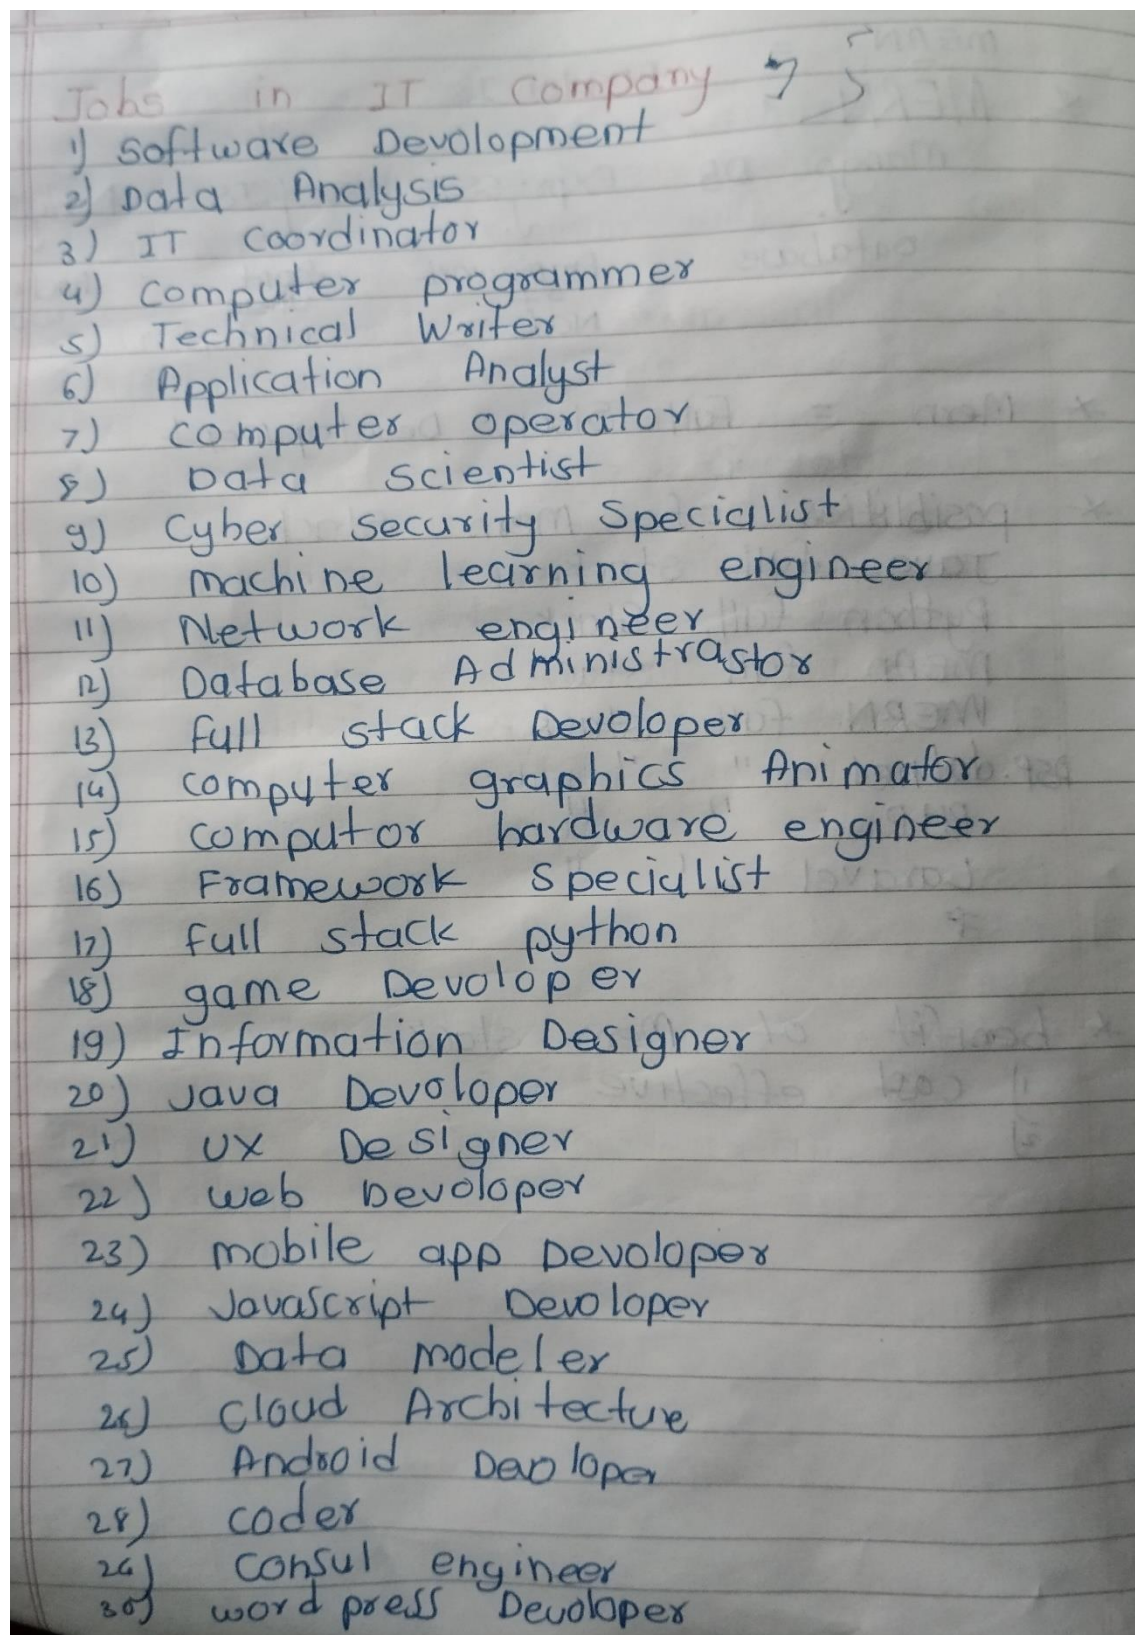 Jobs in IT Company
1) Software Devolopment
2) Data Analysis
3) IT Coordinator
4) Computer programmer
5) Technical Writer
6) Application Analyst
7) computer operator
8) Data Scientist
9) Cyber Security Specialist
10) machine learning engineer
11) Network engineer
12) Database Administrastor
13) full stack Devoloper
14) computer graphics Animator
15) computor hardware engineer
16) Framework Specialist
17) full stack python
18) game Devoloper
19) Information Designer
20) Java Devoloper
21) UX Designer
22) web Devoloper
23) mobile app Devoloper
24) Javascript Devoloper
25) Data modeler
26) Cloud Architecture
27) Android Devoloper
28) coder
26) Consul engineer
30) word press Devoloper